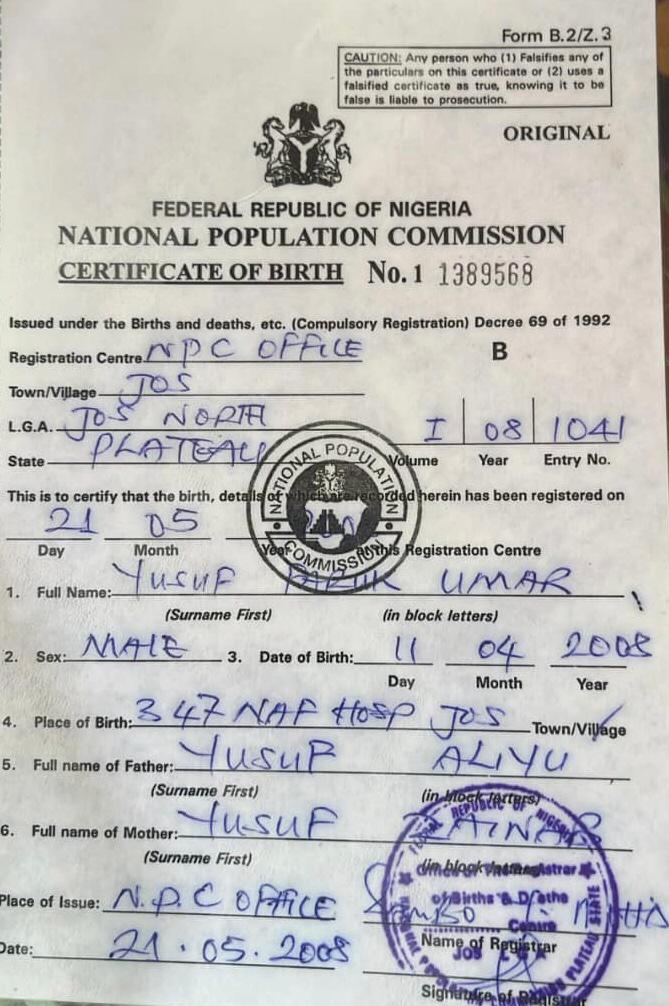 Form B.2/Z.3
CAUTION: Any person who (1) Falsifies any of
the particulars on this certificate or (2) uses a
falsified certificate as true, knowing it to be
false is liable to prosecution.
ORIGINAL
FEDERAL REPUBLIC OF NIGERIA
NATIONAL POPULATION COMMISSION
CERTIFICATE OF BIRTH No. 1 1389568
Issued under the Births and deaths, etc. (Compulsory Registration) Decree 69 of 1992
Registration Centre NPC OFFICE B
Town/Village JOS
L.G.A. JOS NORTH I 08 1041
State PLATEAU Volume Year Entry No.
NATIONAL POPULATION COMMISSION
This is to certify that the birth, details of which are recorded herein has been registered on
21 05
Day Month Year at this Registration Centre
1. Full Name: YUSUF UMAR
(Surname First) (in block letters)
2. Sex: MALE 3. Date of Birth: 11 04 2008
Day Month Year
4. Place of Birth: 347 NAF HOSP JOS Town/Village
5. Full name of Father: YUSUF ALIYU
(Surname First) (in block letters)
6. Full name of Mother: YUSUF ZAINAB
(Surname First) (in block letters)
Place of Issue: N.P.C OFFICE
Name of Registrar
Date: 21.05.2008
Signature of Registrar